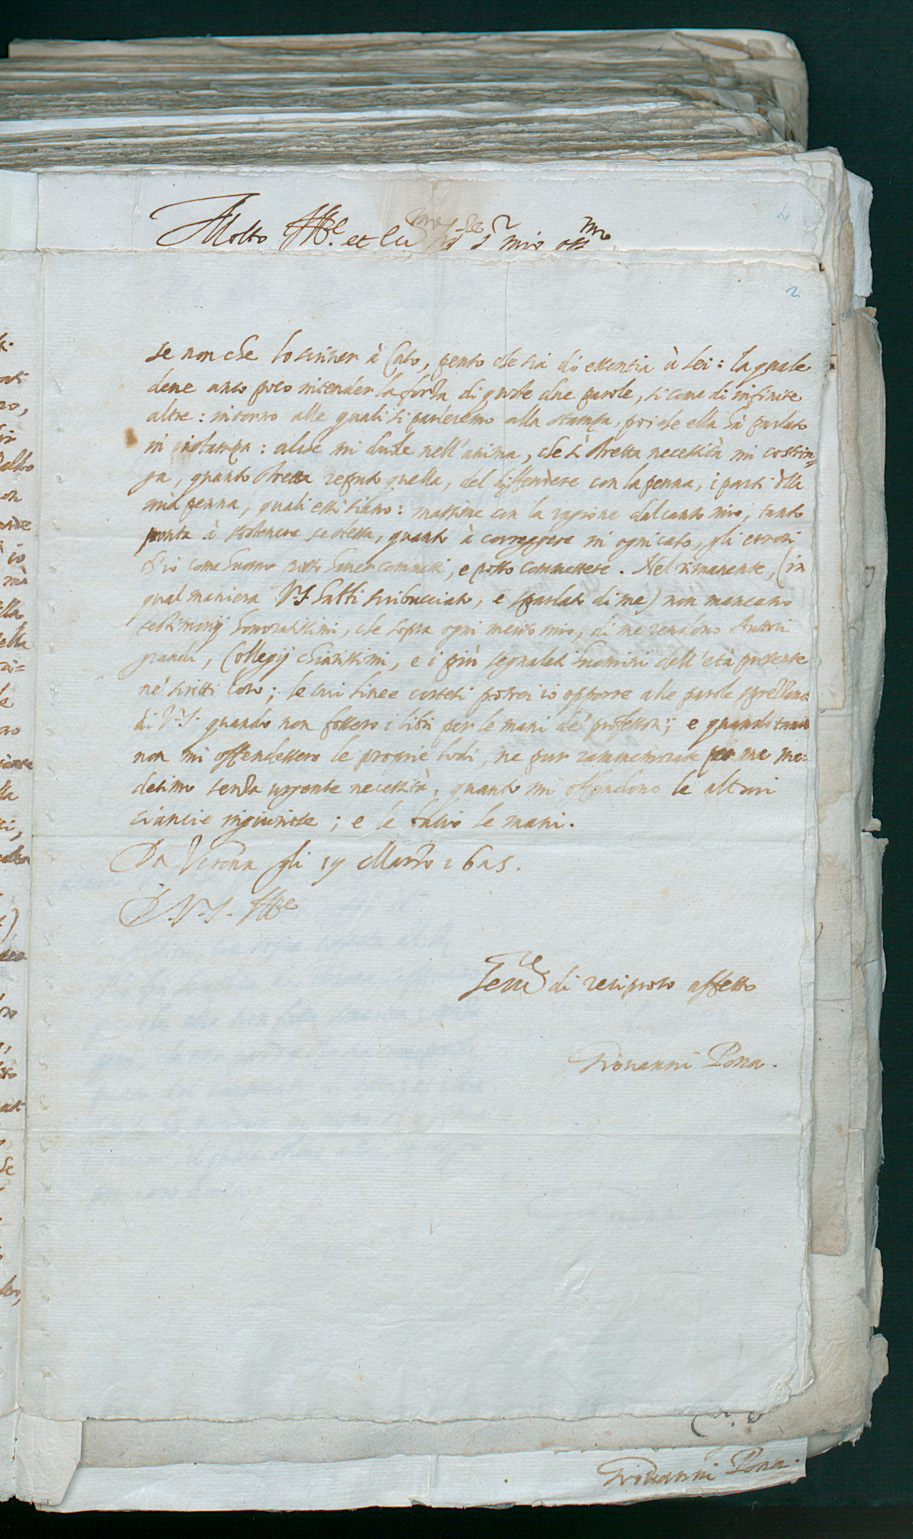 Molto Ill.re et Ecc.mo S.r mio oss.mo
2
Se non che lo scriver à Cato, pento che sia di essentia à lei: la quale
deve anco poco intender la forza di queste due parole, sì come di infinite
altre: intorno alle quali si parleremo alla stampa, poi che ella hà parlato
in istampa: che mi duole nell'anima, che sì stretta necessità mi costrin=
ga, quanto stretta reputo quella, del diffendere con la penna, i parti della
mia penna, quali essi siano: massime con la ragione dal canto mio, tanto
pronta à sostenere se stessa, quanto à correggere in ogni caso, gli errori
ch'io come huomo potti haver commessi, e posso commettere. Nel rimanente, (in
qual maniera V.S. habbi scribacciato, e sparlato di me) non mancano
testimonij honoratissimi, che sopra ogni merito mio, di me rendono Auttori
grandi, Collegij chiarissimi, e i più segnalati huomini dell'età presente
ne' scritti loro; le cui linee cortesi potrei io opporre alle parole sprezzanti
di V.S. quando non fossero i libri per le mani de' professori; e quando tanto
non mi offendessero le proprie lodi, ne pur rammemorate per me me=
desimo senza urgente necessità, quanto mi offendono le altrui
ciancie ingiuriose; e le bacio le mani.
Da Verona gli 19 Marzo 1625.
D. V. S. Ill.re
Ser.re di reciproco affetto
Giovanni Pona.
Giovanni Pona.